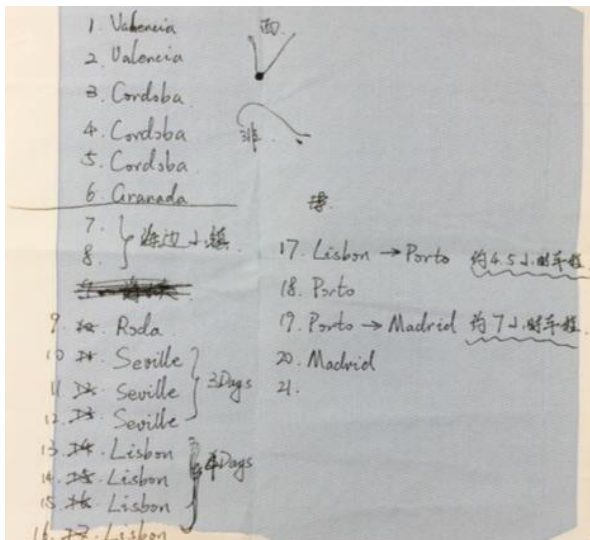 1. Valencia
2. Valencia
3. Cordoba.
4. Cordoba
5. Cordoba
6. Granada
7.
8. 海边小镇
9. Roda
10. Seville
11. Seville
12. Seville
3 Days
13. Lisbon
14. Lisbon
15. Lisbon
16. Lisbon
4 Days
17. Lisbon → Porto 约4.5小时车程
18. Porto
19. Porto → Madrid 约7小时车程
20. Madrid
21.